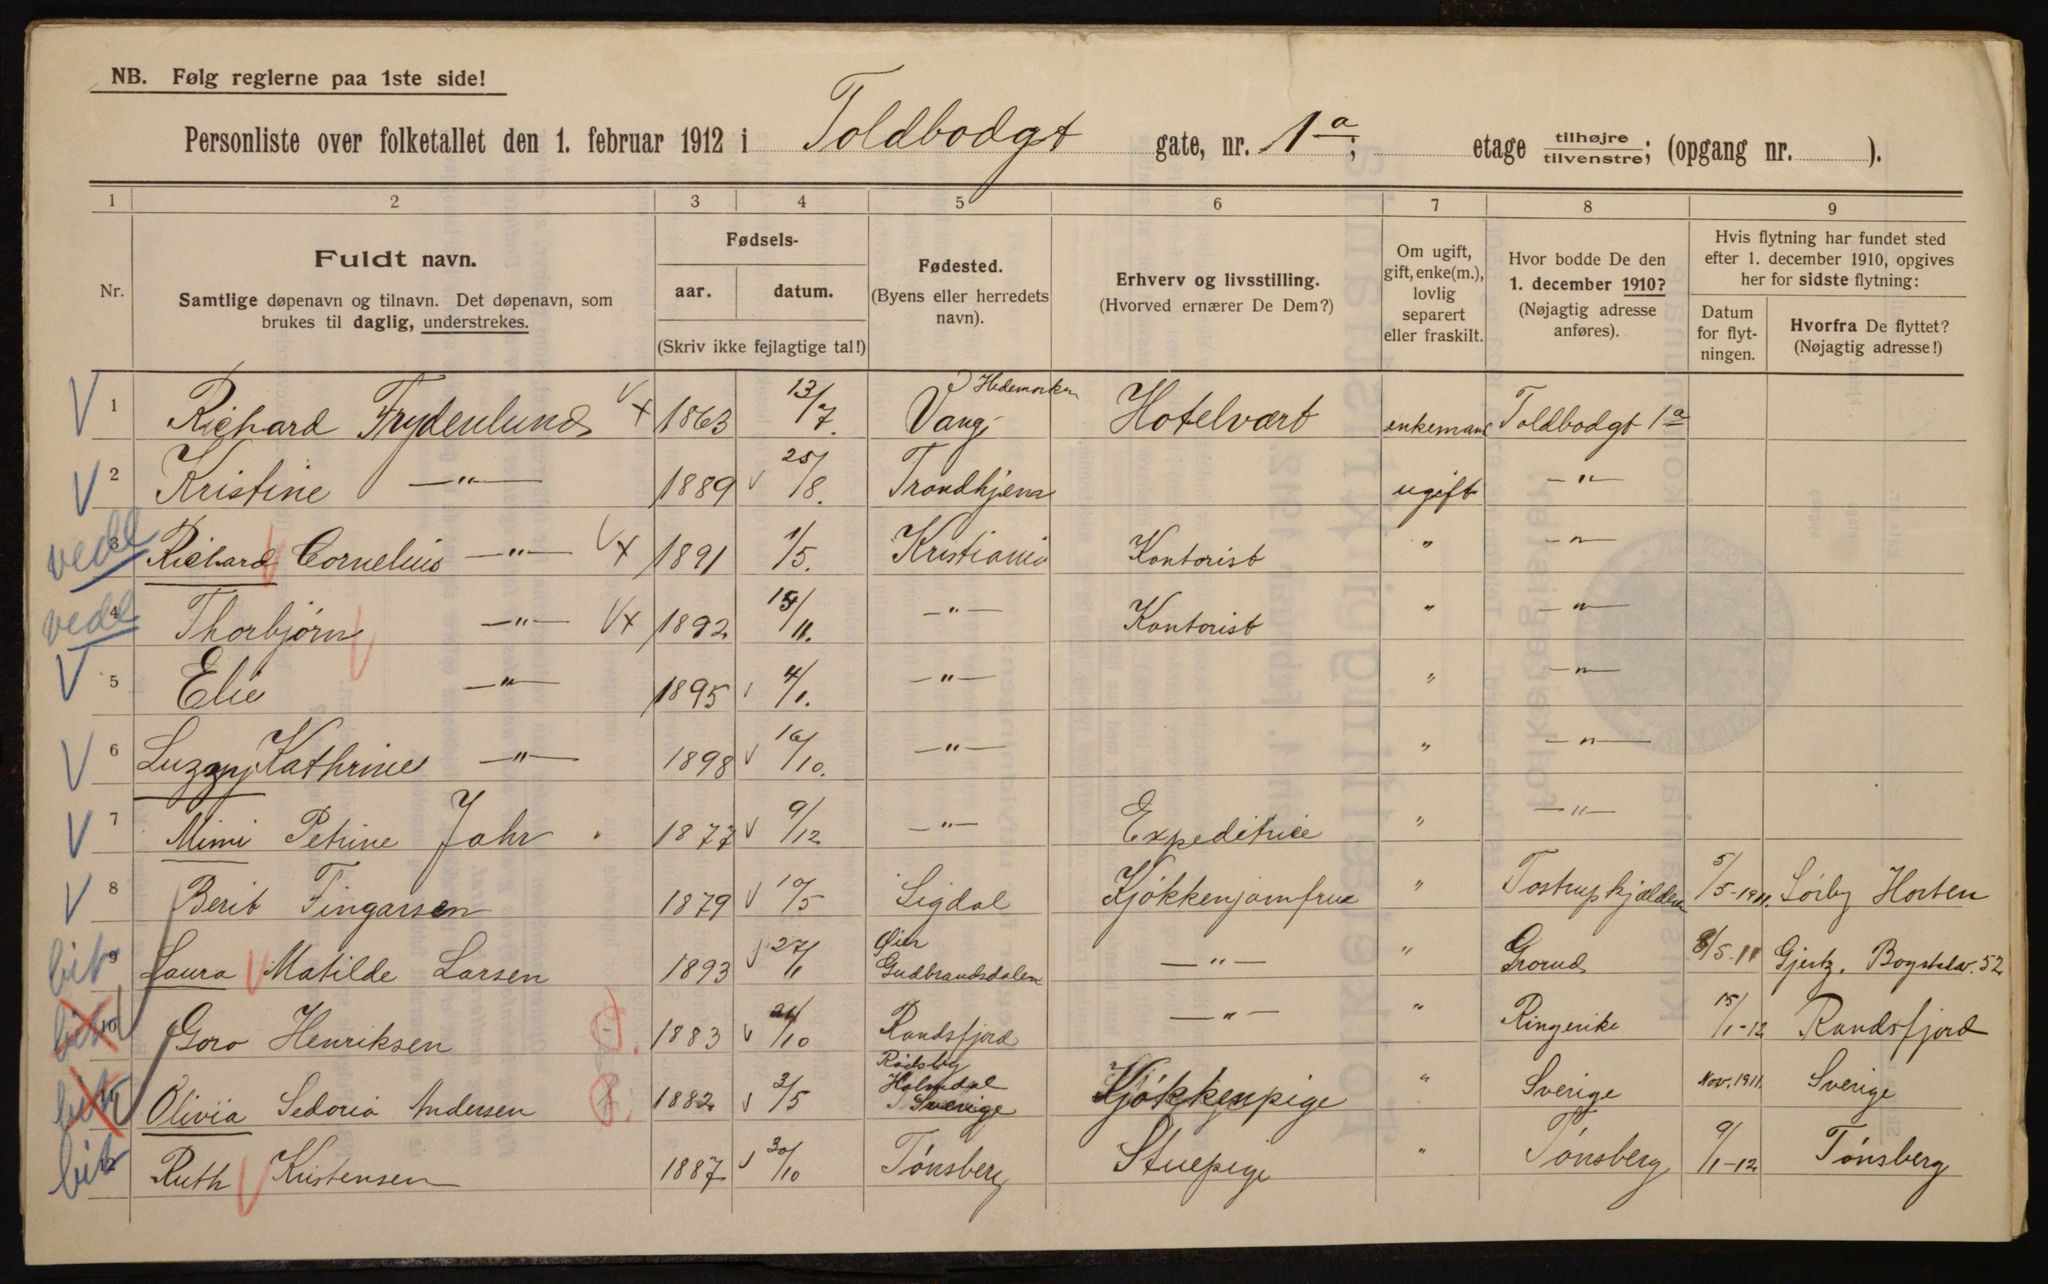 NB. Følg reglerne paa 1ste side!
Personliste over folketallet den 1. februar 1912 i Toldbodgt gate, nr. 1a; etage tilhøjre/tilvenstre; (opgang nr. ).
1 2 3 4 5 6 7 8 9
Nr.
Fuldt navn.
Samtlige døpenavn og tilnavn. Det døpenavn, som
brukes til daglig, understrekes.
Fødsels-
aar. datum.
(Skriv ikke fejlagtige tal!)
Fødested.
(Byens eller herredets
navn).
Erhverv og livsstilling.
(Hvorved ernærer De Dem?)
Om ugift,
gift, enke(m.),
lovlig
separert
eller fraskilt.
Hvor bodde De den
1. december 1910?
(Nøjagtig adresse
anføres).
Hvis flytning har fundet sted
efter 1. december 1910, opgives
her for sidste flytning:
Datum
for flyt-
ningen.
Hvorfra De flyttet?
(Nøjagtig adresse!)
V 1 Richard Frydenlund V x 1863 13/7. Vang, Hedemarken Hotelvært enkemand Toldbodgt 1a
V 2 Kristine —"— 1889 V 25/8. Trondhjem ugift —"—
vedl 3 Richard Cornelius —"— V x 1891 1/5. Kristiania Kontorist " —"—
vedl 4 Thorbjørn —"— V x 1892 /11. —"— Kontorist " —"—
V 5 Elie —"— 1895 4/1. —"— " —"—
V 6 Luzzy Kathrine —"— 1898 V 16/10. —"— " —"—
V 7 Mimi Petrine Jahr 1877 V 9/12 —"— Expeditrice " —"—
V 8 Berit Fingarsen 1879 V 10/5 Sigdal Kjøkkenjomfrue " Tostrupkjælderen 5/5-1911. Sørby Horten
bit 9 Laura Matilde Larsen 1893 27/1 Øier Gudbrandsdalen —"— " Grorud 8/5-11 Gjertz. Bogstadv. 52
10 Goro Henriksen 1883 V /10 Randsfjord —"— " Ringerike 15/1-12 Randsfjord
bit 11 Olivia Sedoria Andersen 1882 V 3/5 Holmdal Sverige Kjøkkenpige " Sverige Nov. 1911. Sverige
bit 12 Ruth Kristensen 1887 V 30/10 Tønsberg Stuepige " Tønsberg 9/1-12 Tønsberg